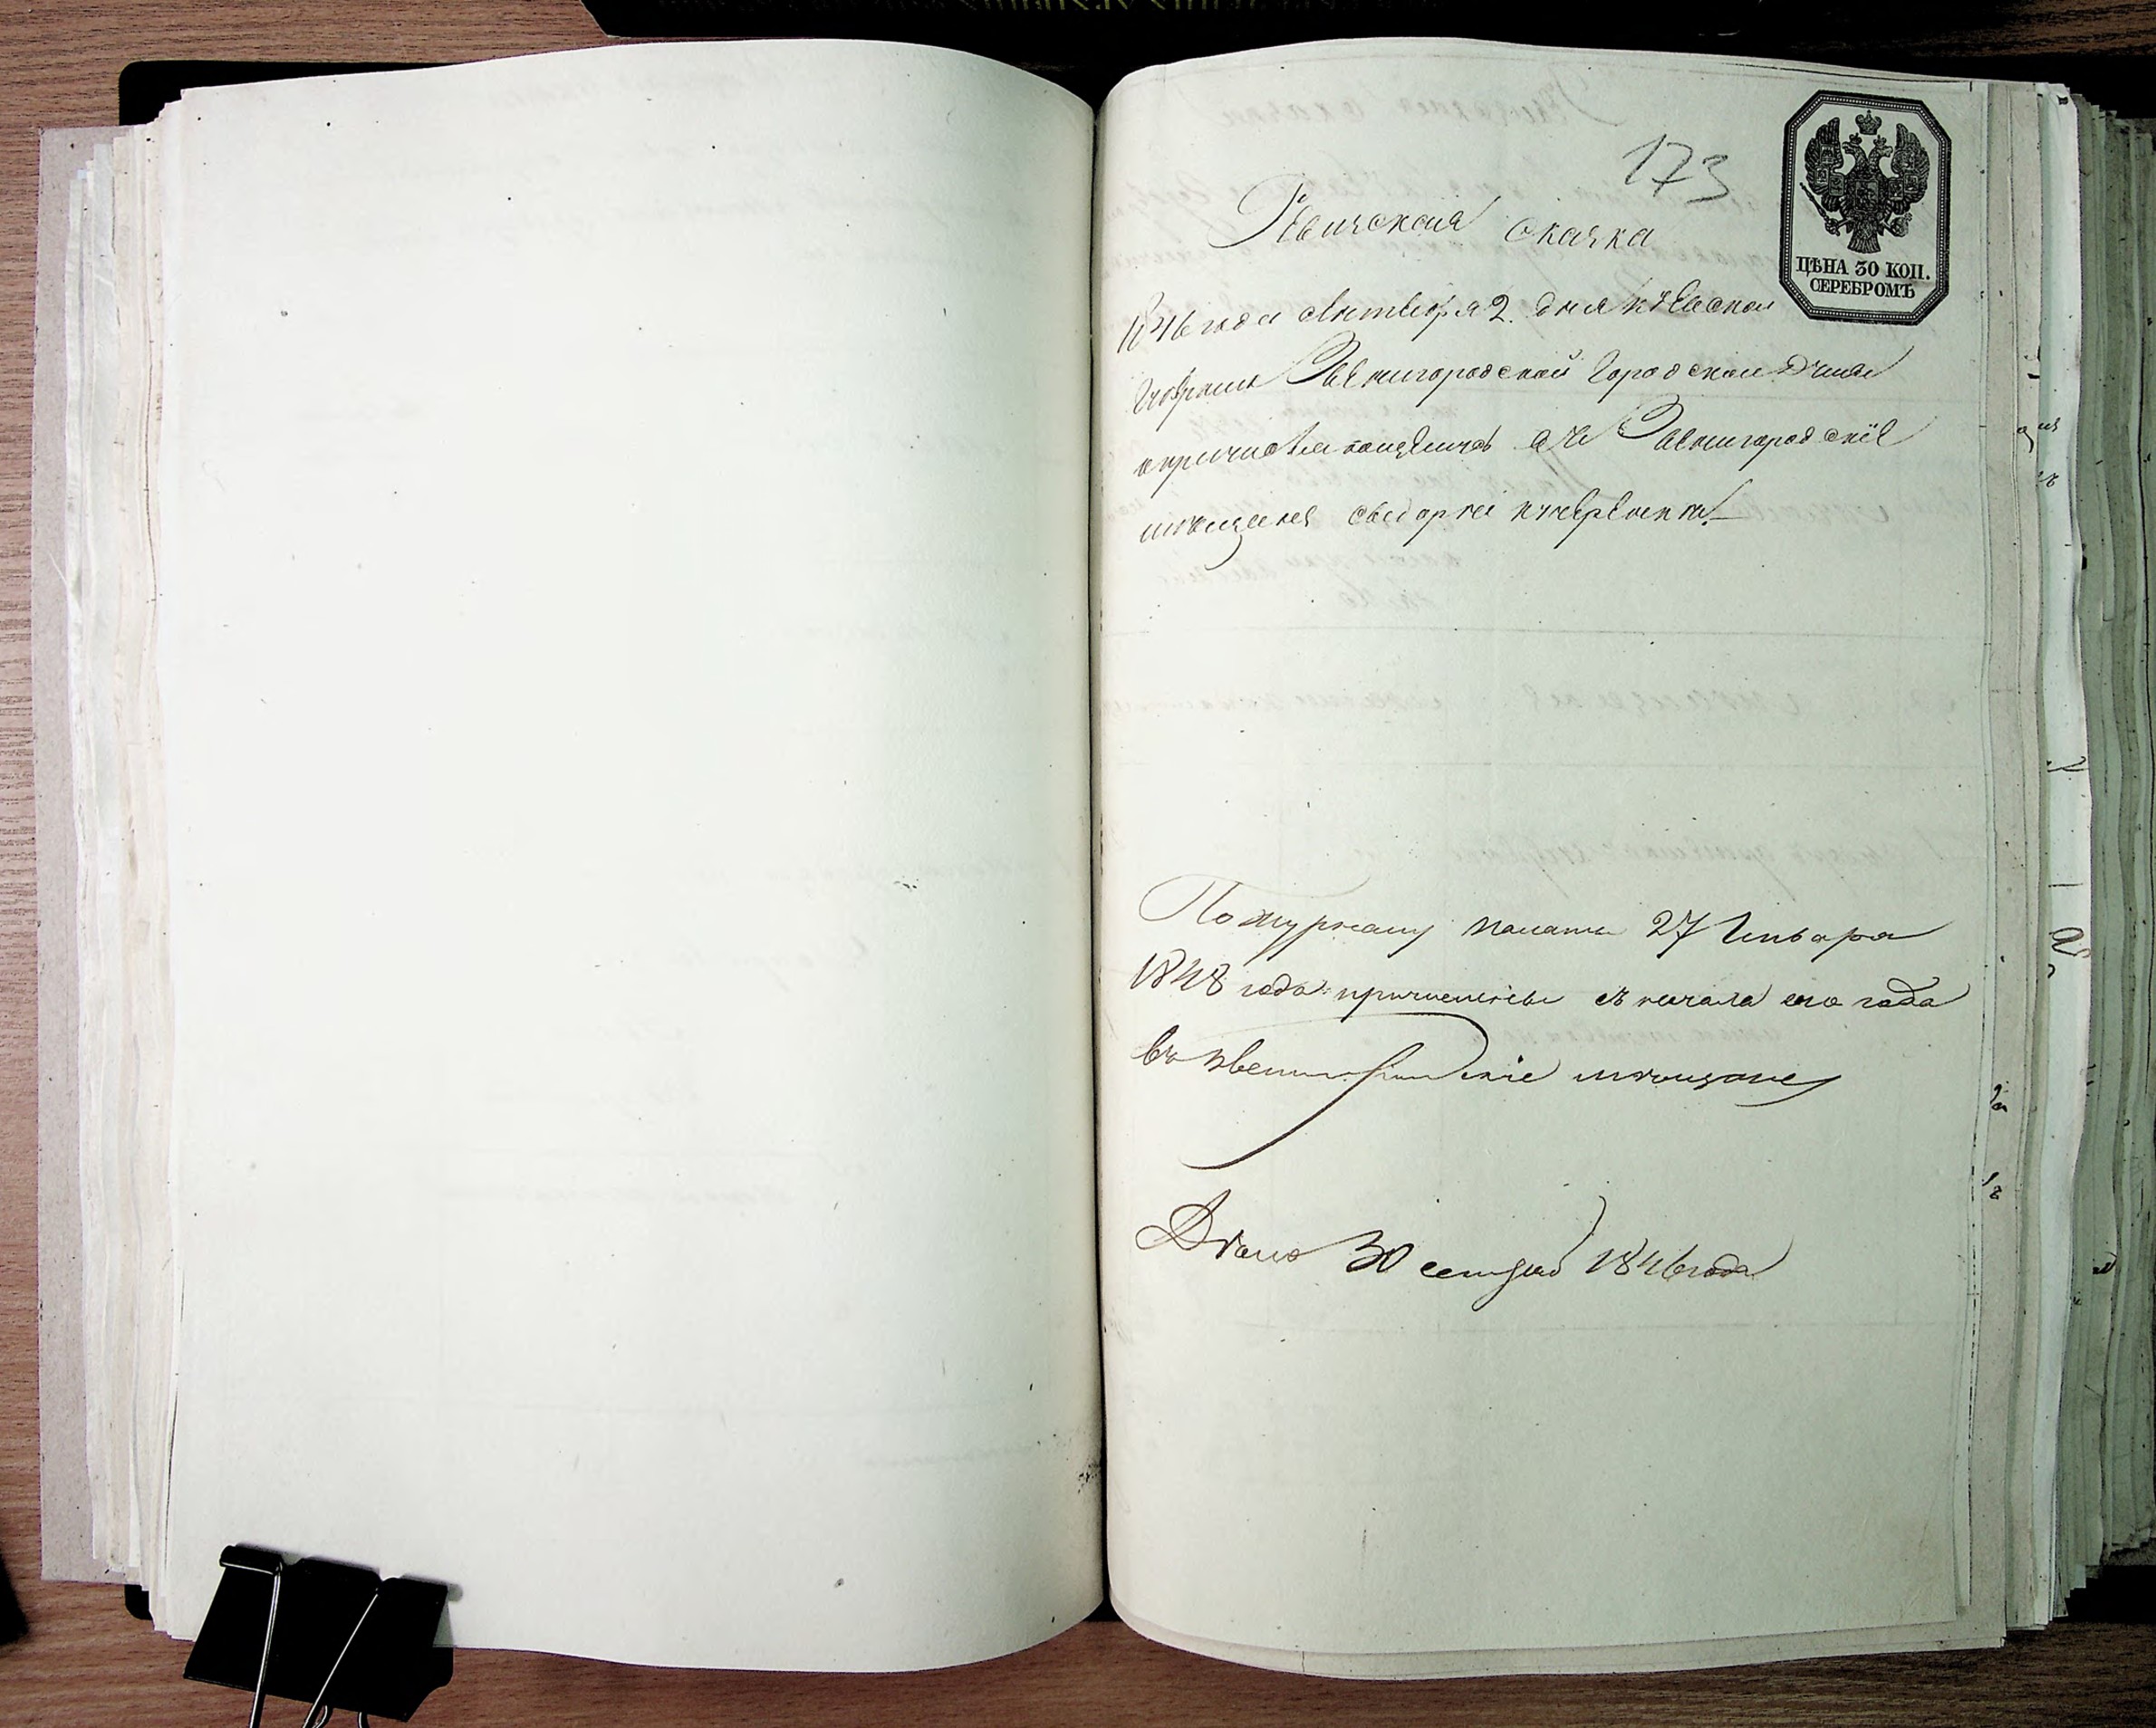 173
ЦѢНА 30 КОП.
СЕРЕБРОМЪ
Ревизская сказка
1846 года октября 2 дня Кіевской
Губерніи Звенигородской Городской Думы
о причисляющемся въ Звенигородскіе
мѣщане
По журналу палаты 27 Января
1848 года причислены съ начала сего года
въ Звенигородскіе мѣщане
Дѣло 30 1846 года